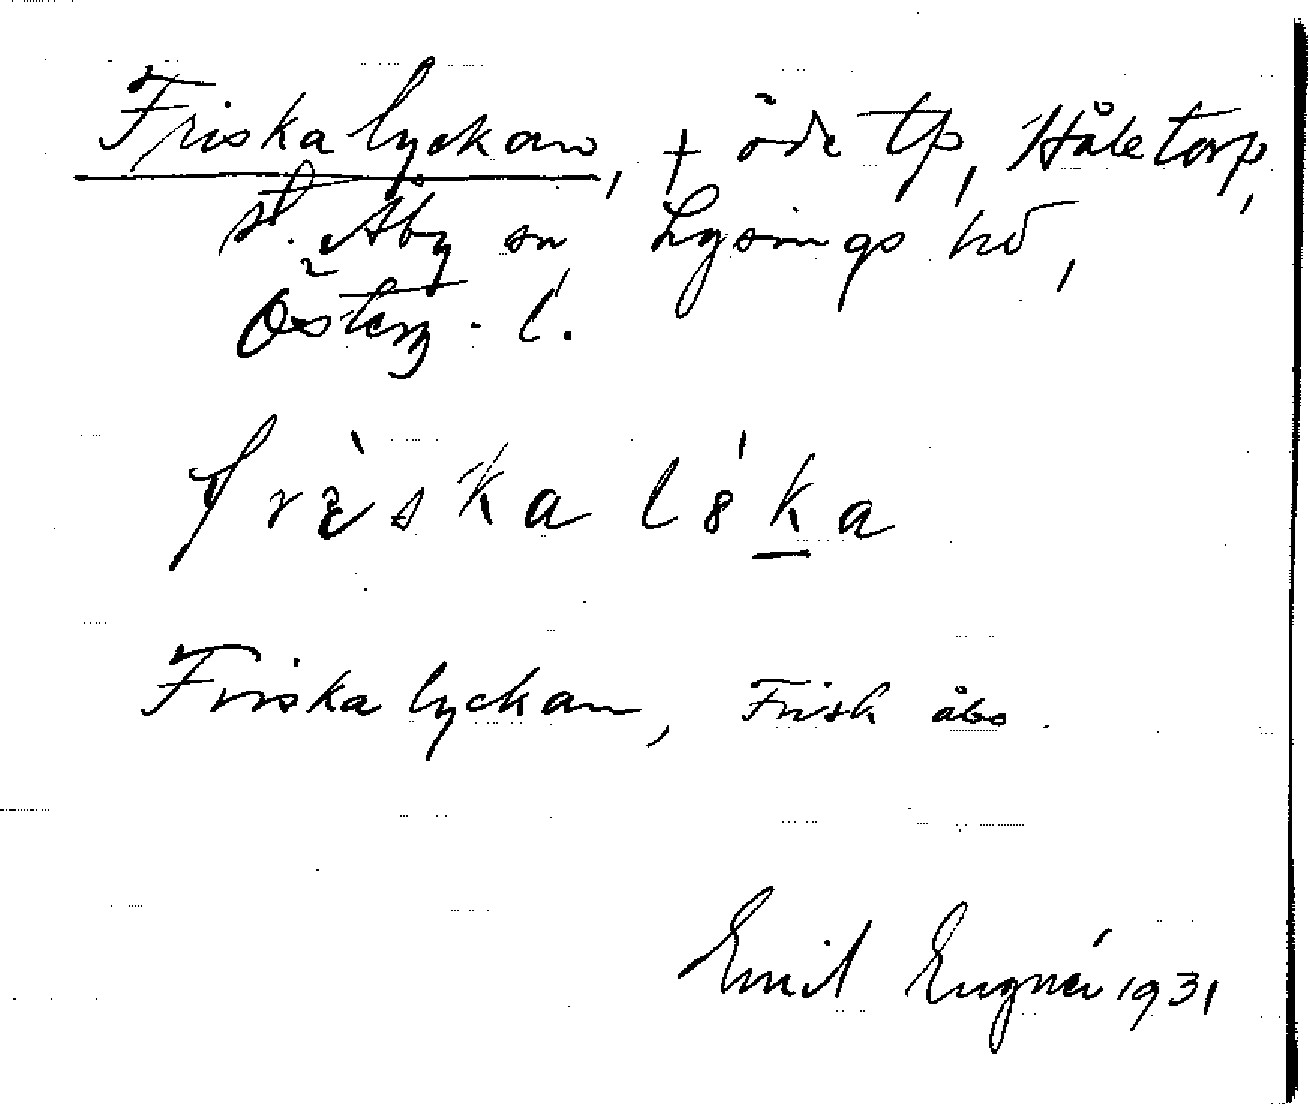 Friska lyckan, † öde tp, Håletorp,
st. Åby sn Lysings hd,
Österg. l.
frìska l8́ka
Friska lyckan, Frisk åbo.
Emil Eugnér 1931